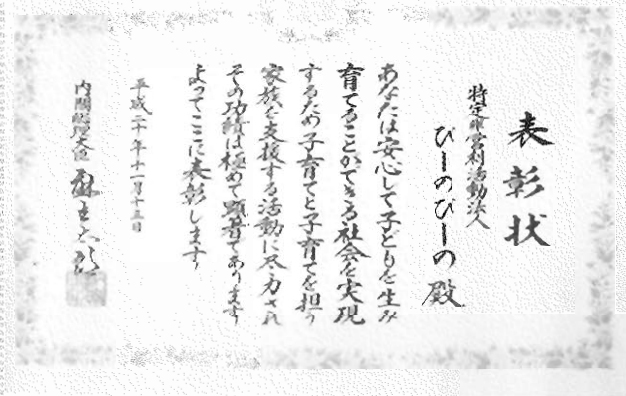 表彰状
特定非営利活動法人
びーのびーの 殿
あなたは安心して子どもを生み
育てることができる社会を実現
するため子育てと子育てを担う
家族を支援する活動に尽力され
その功績は極めて顕著であります
よってここに表彰します
平成二十年十一月十五日
内閣総理大臣 麻生太郎